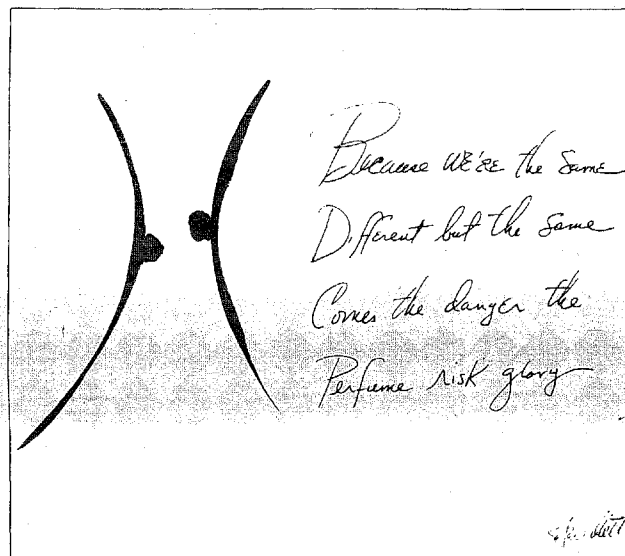 Because we're the same
Different but the same
Comes the danger the
Perfume risk glory